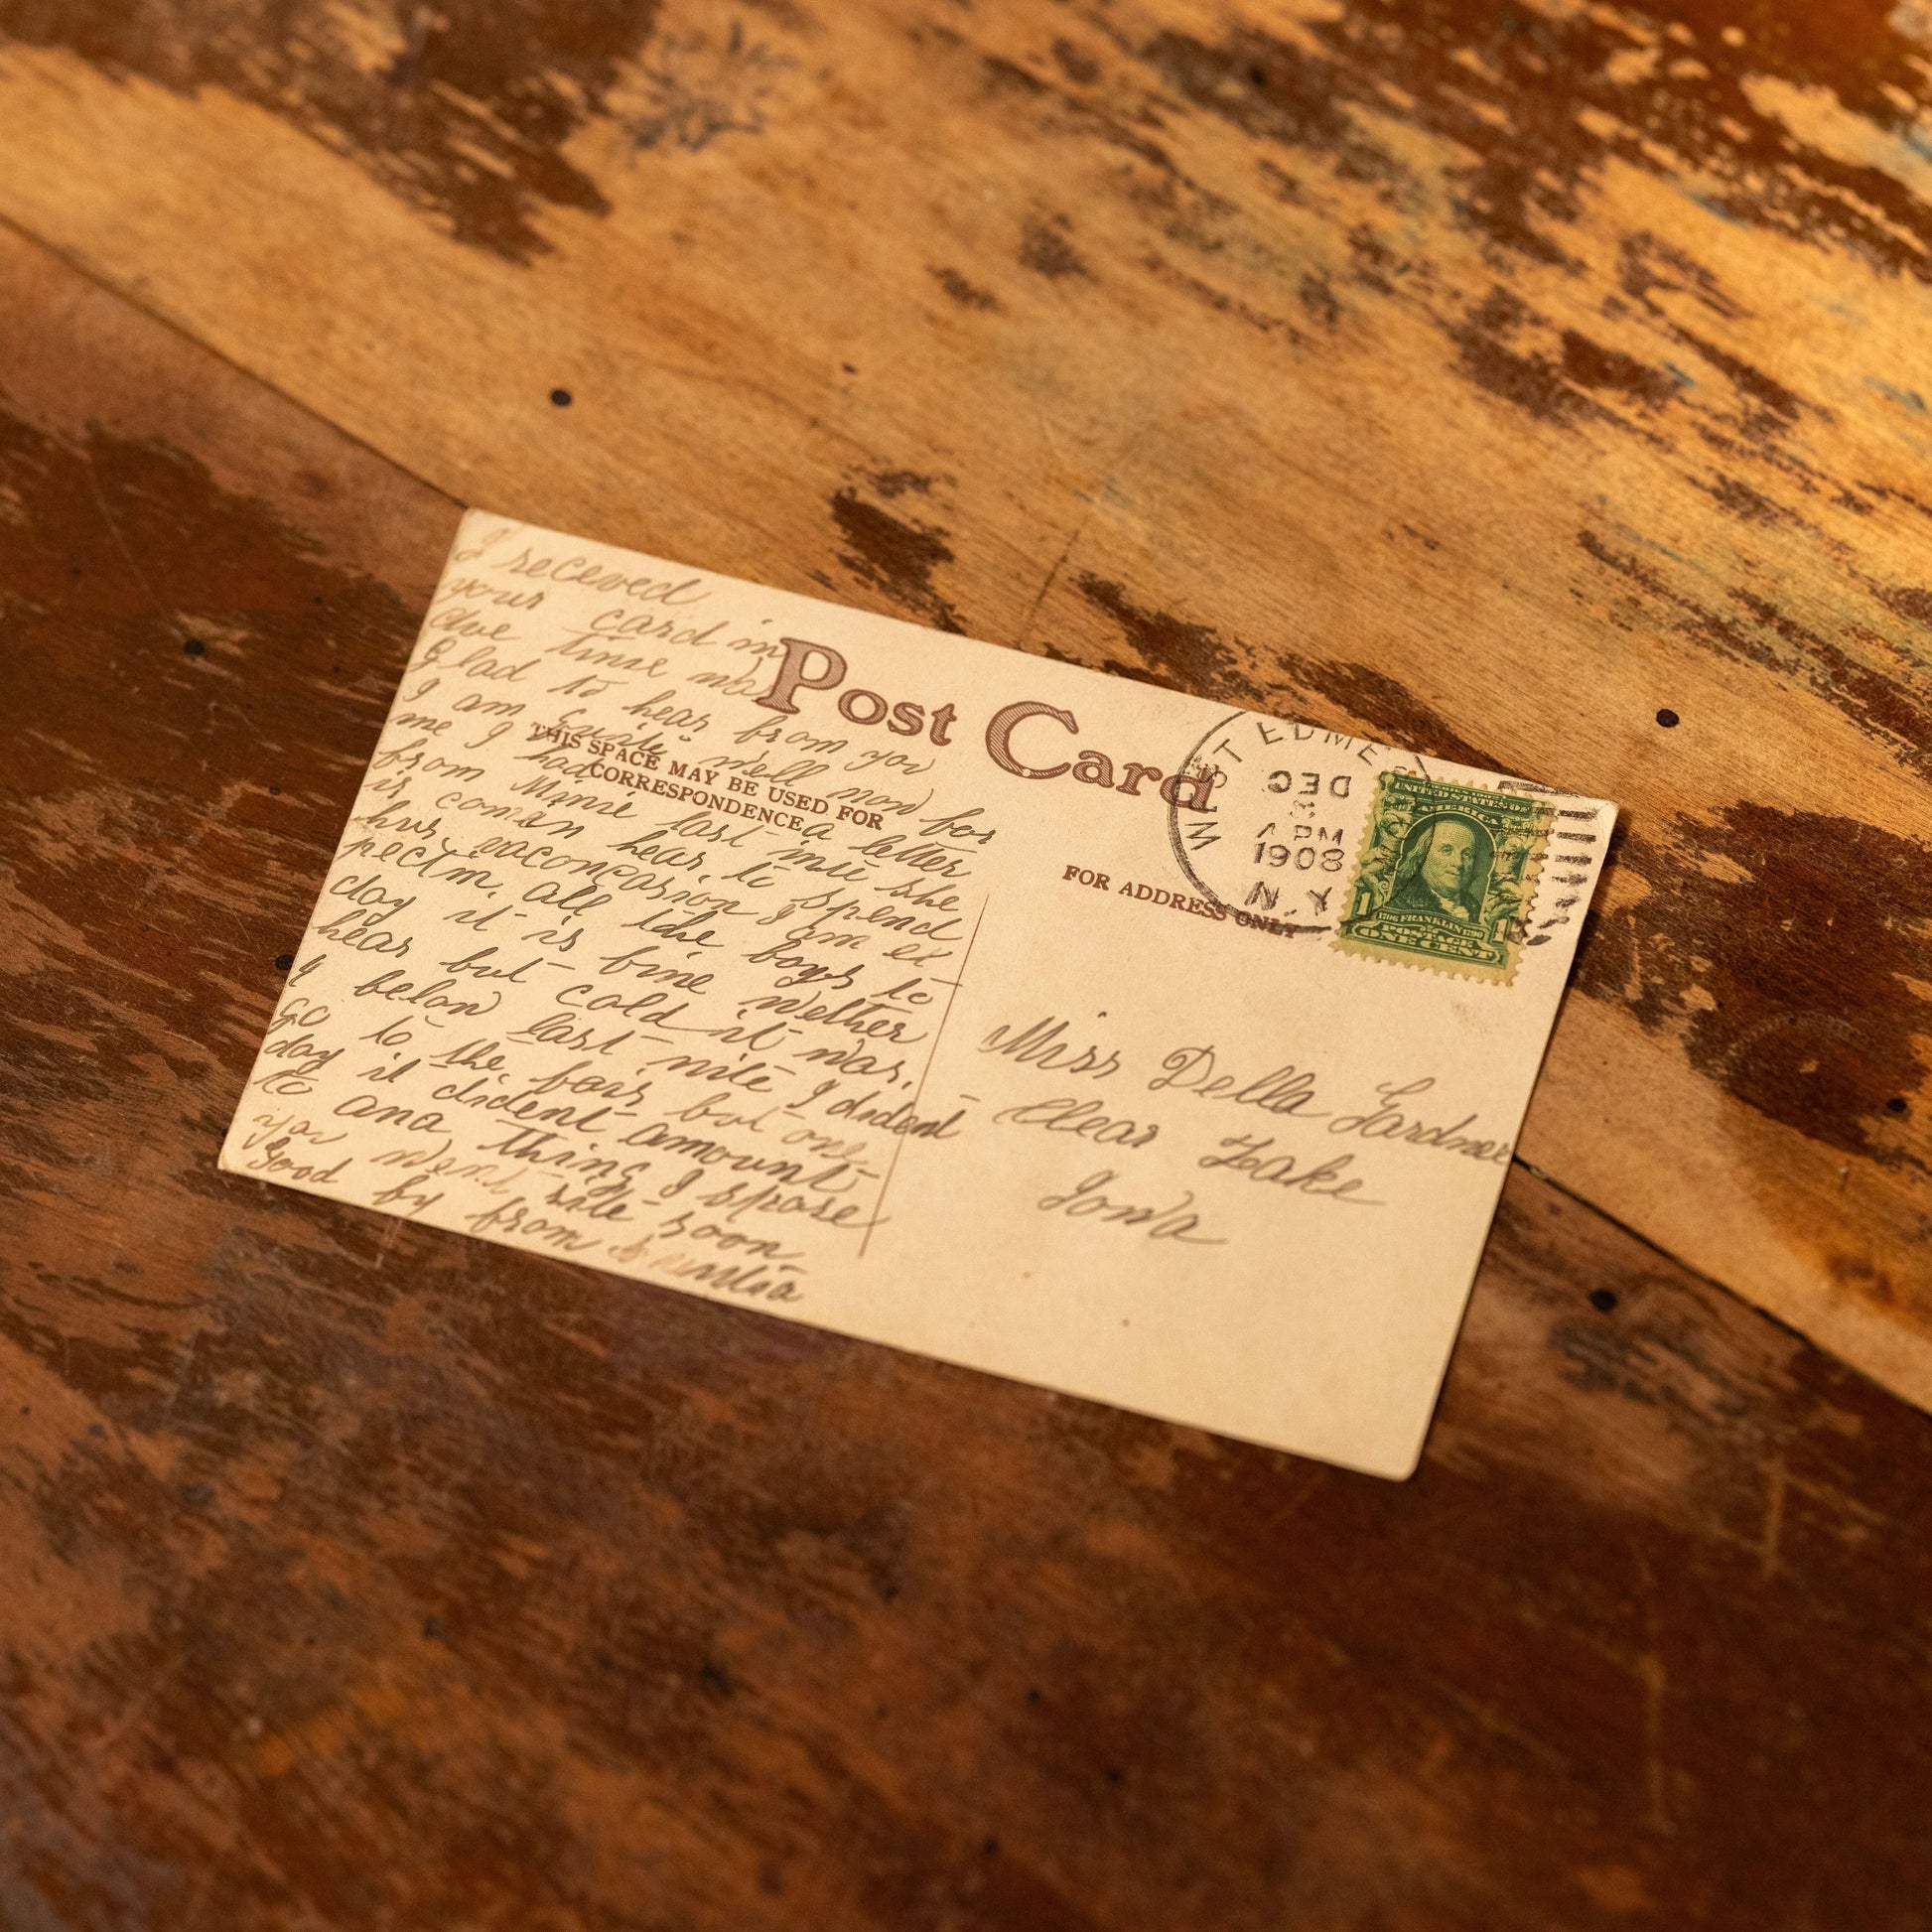 I receved
your card in
due time was
glad to hear from you
I am quite well now for
me I had a letter
from Minie last nite she
is coman hear to spend
hur I am ex
pectin, all the boys to
day it is fine wether
hear but cold it was.
4 belaw last nite I dident
go to the fair but one
day it dident amount
to ana thing I spose
you rite soon
good by from
Post Card
THIS SPACE MAY BE USED FOR
CORRESPONDENCE
FOR ADDRESS ONLY
WEST EDME
DEC
PM
1908
N.Y.
UNITED STATES OF
AMERICA
1706 FRANKLIN 1790
1 POSTAGE 1
ONE CENT
Miss Della Gardner
Clear Lake
Iowa